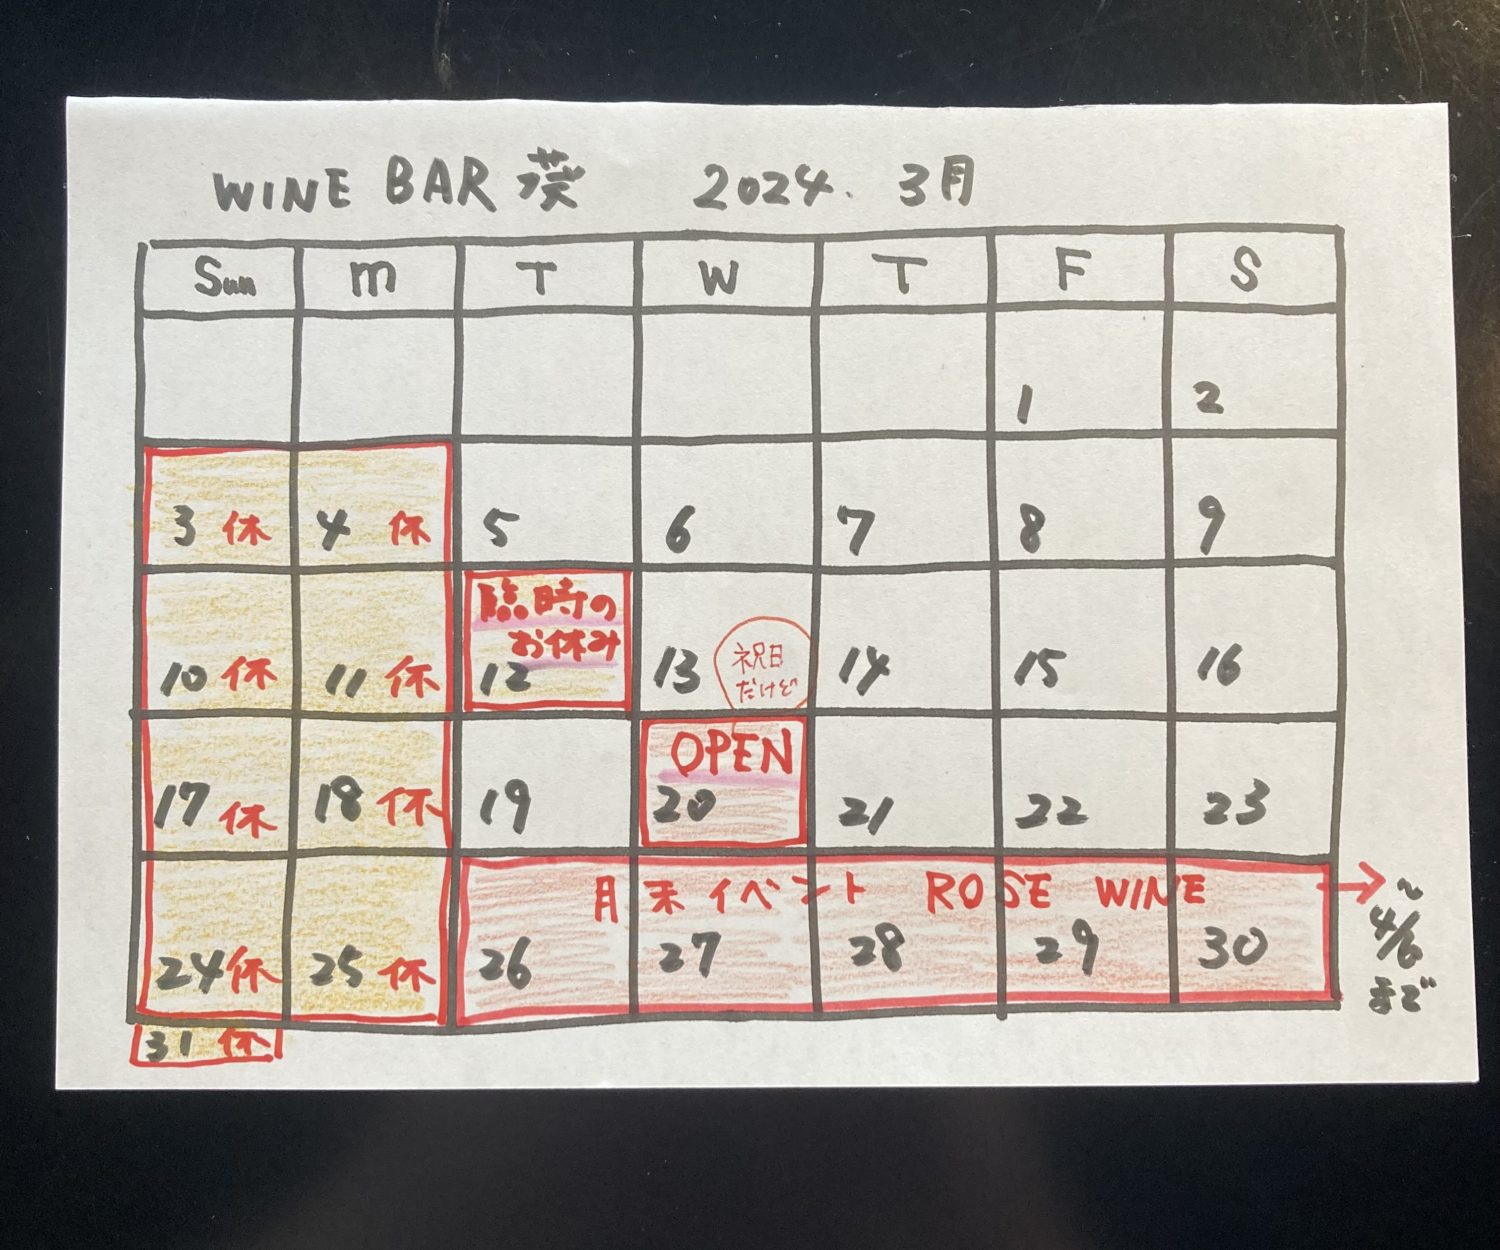 WINE BAR 葵 2024. 3月
Sun M T W T F S
1 2
3 休 4 休 5 6 7 8 9
臨時の
お休み
祝日
だけど
10 休 11 休 12 13 14 15 16
OPEN
17 休 18 休 19 20 21 22 23
月末イベント ROSE WINE → ~4/6まで
24 休 25 休 26 27 28 29 30
31 休